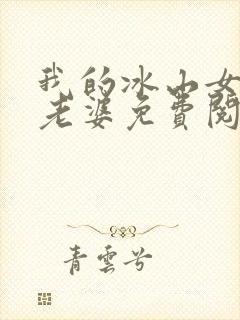 我的冰山女
老婆免费阅
青雲兮